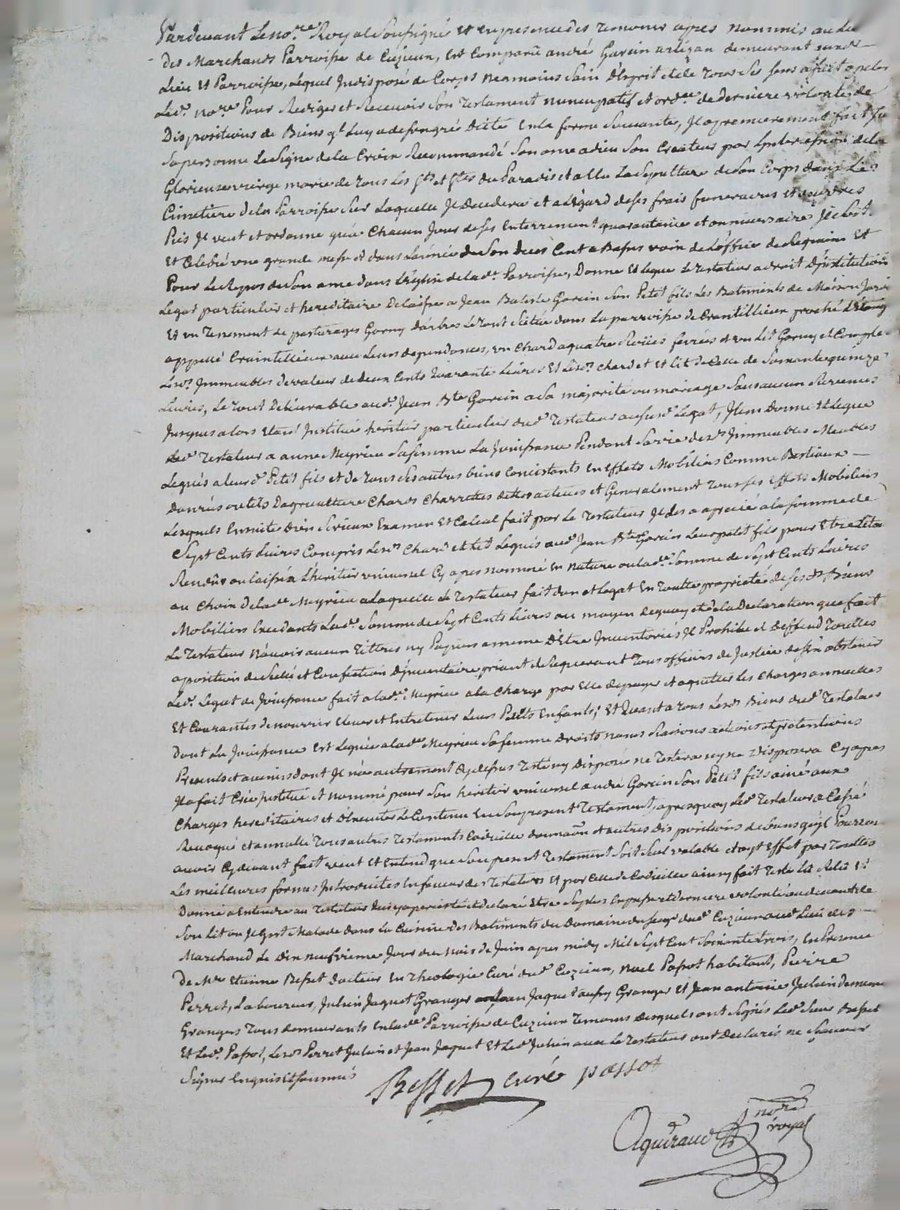 Pardevant Le no.re Royal Soussigné et en presence des temoins apres nommés au lieu
des Marchands Parroisse de Cuzieu, Est Comparû andré Garcin artizan demeurant aud.
Lieu et Parroisse, Lequel Indisposé de Corps Neanmoins Sain d'Esprit et de tous Ses Sens a fait apeller
Led. no.re Pour Rediger et Recevoir Son Testament nuncupatif et ord.ce de derniere volonté, de
Dispositions de Biens q.l Luy a de son gré dicté En la forme Suivante, Il a premierement fait Sur
Sa personne Le Signe de la Croix Recommandé Son ame a dieu Son Createur par L'Intercession de la
Glorieuse vierge marie de tous Les S.ts et S.tes du Paradis et allu La Sepulture de Son Corps dans Le
Cimetière de la Parroisse Sur Laquelle Il Decedera et a L'Egard de Ses frais funeraires et oeuvres
Pies Il veut et ordonne qu'a Chacun Jour de Ses Enterrement quarantaine et anniversaire Il Soit
Et Celebré une grande messe et dans L'année de Son deces Cent a Basses voix de L'office de Requiem Et
Pour Le Repos de Son ame dans L'Eglise de lad. Parroisse, Donne et Legue Le testateur a droit d'Institution
Legat particulier et hereditaire Delaisse a Jean Batiste Garcin Son Petit fils Les Batiments de Maison Jardin
Et un tenement de pasturages Garny d'arbres Le tout Situé dans La parroisse de Craintillieu proche L'Etang
appellé Craintillieu avec Leurs dependances, un Chard a quatre Roües ferrées et un Lit Garny et Complet
Lesd. Immeubles de valeur de deux Cents quarante Livres Et Lesd. Chard et Lit de Celle de Soixante quinze
Livres, Le tout Delivrable aud. Jean B.te Garcin a Sa majorité ou mariage Sans aucun Revenus
Jusques alors et a Institué héritier particulier dud. testateur au Susd. Legat, Item Donne et Legue
Led. Testateur a anne Meyrieu Sa femme La Jouissance Pendant Sa vie desd. Immeubles Meubles
Legués a leurd. Petit fils et de tous Ses autres biens Consistants en Effets Mobiliers Comme Bestiaux
Danrées outils d'agriculture Chards Charrettes dettes actives et Generalement Tous Ses Effets Mobiliers
Lesquels Ensuitte d'Un Serieux Examen et Calcul fait par Le testateur Il les a apreciés a la Somme de
Sept Cents Livres Compris Lesd. Chard et Lit Legués aud. Jean B.te Garcin Leur petit fils pour Etre Led.
Rendüs ou laissés a L'héritier universel Cy apres nommé en Nature ou lad. Somme de Sept Cents Livres
au Choix de lad. Meyrieu a Laquelle Le Testateur fait don et Legat En toutte proprieté de Ses d. Biens
Mobiliers Excedants Lad. Somme de Sept Cents Livres au moyen de quoy et de la Declaration que fait
Le Testateur N'avoir aucun Tittres ny Papiers a meme D'Etre Inventoriés Il Prohibe et Deffend Touttes
aposition de Scellé et Confection D'Inventaire priant et Requerant Tous officiers de Justice de S'En abstenir
Led. Legat de Jouissance fait a lad. Meyrieu a la Charge par Elle de payer et aquitter Les Charges annuelles
Et Courantes de nourrir Elever et Entretenir Leurs Petits Enfants; Et Quant a tous Lesd. Biens dud. Testateur
Dont La Jouissance Est Leguée a lad. Meyrieu Sa femme Droits noms Raisons actions et pretentions
Presents et avenirs dont Il n'a autrement Cy dessus Testé ny Disposé ne Testera ny ne Disposera Cy apres
Il a fait Crée Institué et nommé pour Son héritier universel andré Garcin Son Petit fils ainé aux
Charges hereditaires et d'Executer Le Contenu En Son present Testament, apres quoy Led. Testateur a Cassé
Revoqué et annullé Tous autres Testaments Codicilles donnaõn et autres Dispositions de biens qu'il Pourroit
avoir Cy devant fait veut et Entend que Son present Testament Soit Seul valable et ayt Effet par Touttes
Les meilleures formes Introduites En faveur des Testateurs Et par Celle de Codicille ainsy fait Testé Lû Relû Et
Donné a Entendre au Testateur qui y a persisté et declaré Etre Sa plus Expresse et derniere volonté au devant de
Son Lit ou Il Gist Malade dans La Cuisine des Batiments du Domaine du Seig.r dud. Cuzieu aud. Lieu des
Marchand Le Dix neufvieme Jour du Mois de Juin apres midy Mil Sept Cent Soixante trois, En Presence
De M.re Etienne Besset Docteur En Theologie Curé dud. Cuzieu, Noel Passot habitant, Pierre
Perret, Laboureur, Julien Jaquet Granger Jean Jaquet aussy Granger Et Jean antoine Julien de meme
Granger Tous demeurants En lad. Parroisse de Cuzieu Temoins Desquels ont Signés Led. Sieur Besset
Et Led. Passot, Lesd. Perret Julien et Jean Jaquet Et Led. Julien avec Le Testateur ont Declarés ne Sçavoir
Signer Enquis Et Sommés
Besset curé passot
no.re
royal